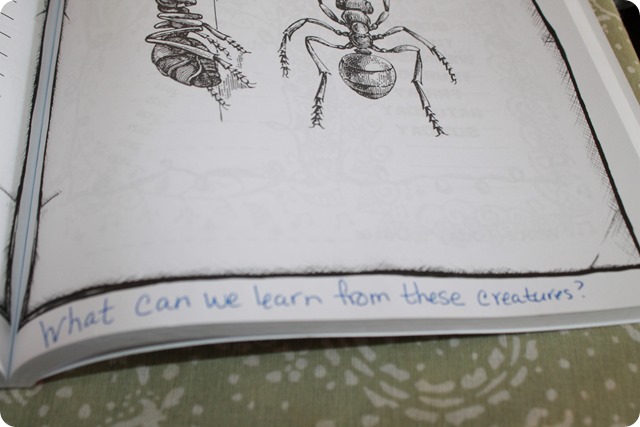 What can we learn from these creatures?